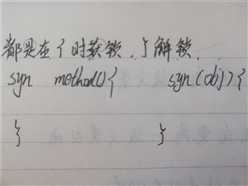 都是在{时获锁,}解锁.
syn method(){ syn(obj){
} }